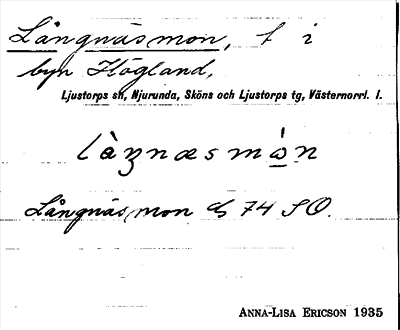 Långnäsmon, t i
byn Högland,
Ljustorps sn, Njurunda, Sköns och Ljustorps tg, Västernorrl. l.
làŋnæsmòn
Långnäsmon G 74 SO.
ANNA-LISA ERICSON 1935